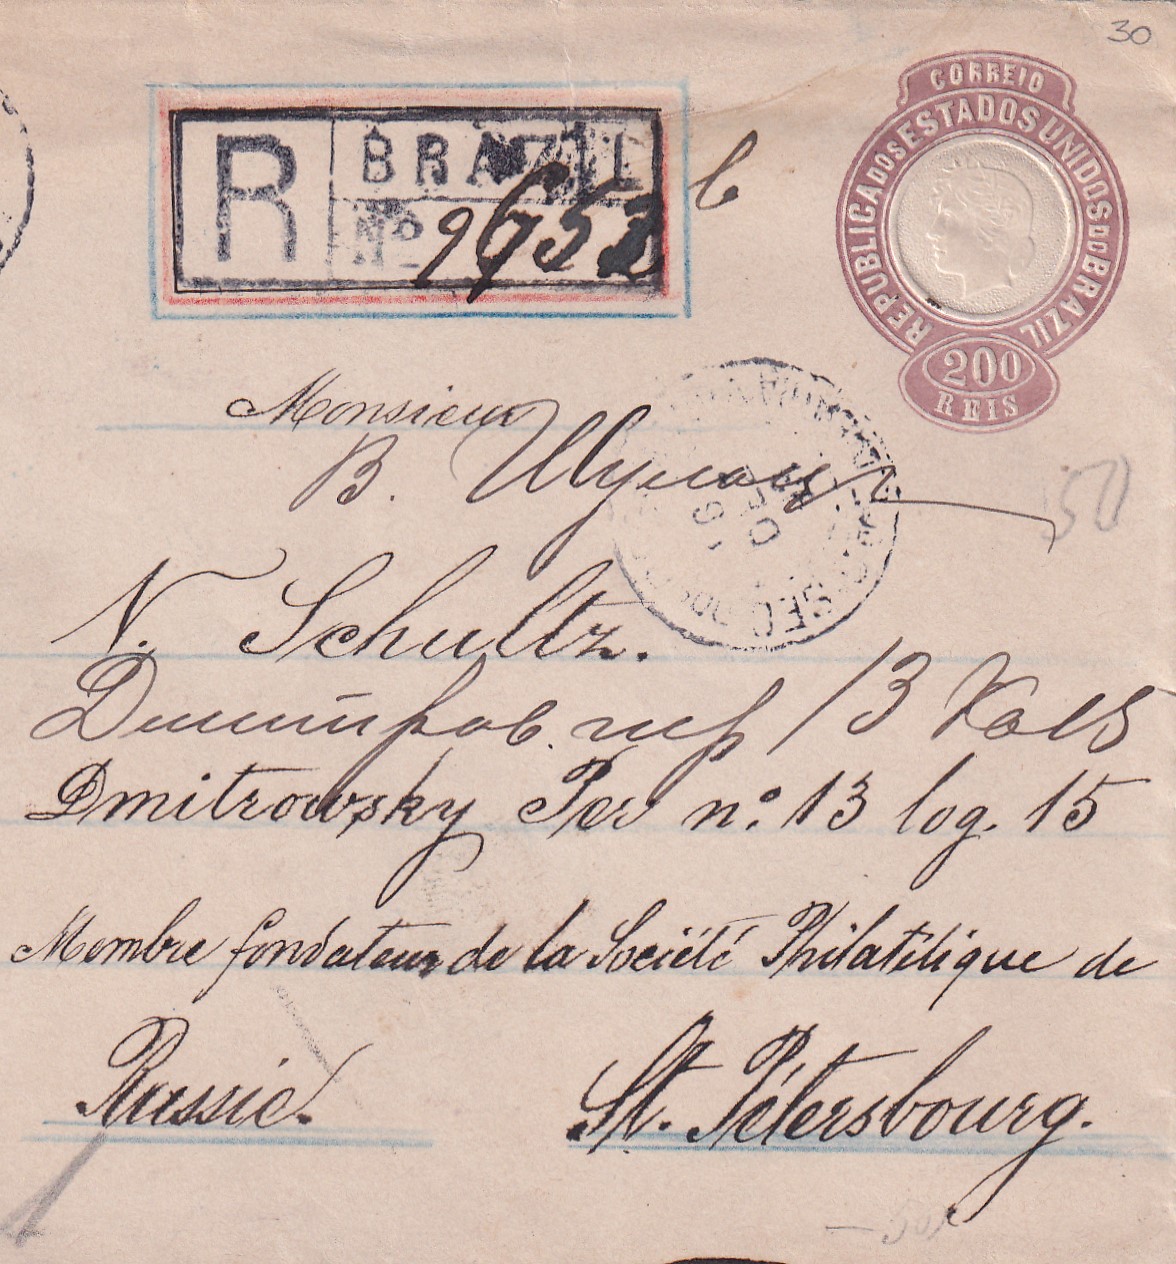 30
CORREIO
REPUBLICA DOS ESTADOS UNIDOS DO BRAZIL
200
REIS
R
BRAZIL
Nº 9653
Monsieur
В. Шульцу
50
N. Schultz.
Дмитров. пер 13 кв 15
Dmitrowsky Per nº 13 log. 15
Membre fondateur de la Société Philatélique de
Russie.
St. Pétersbourg.